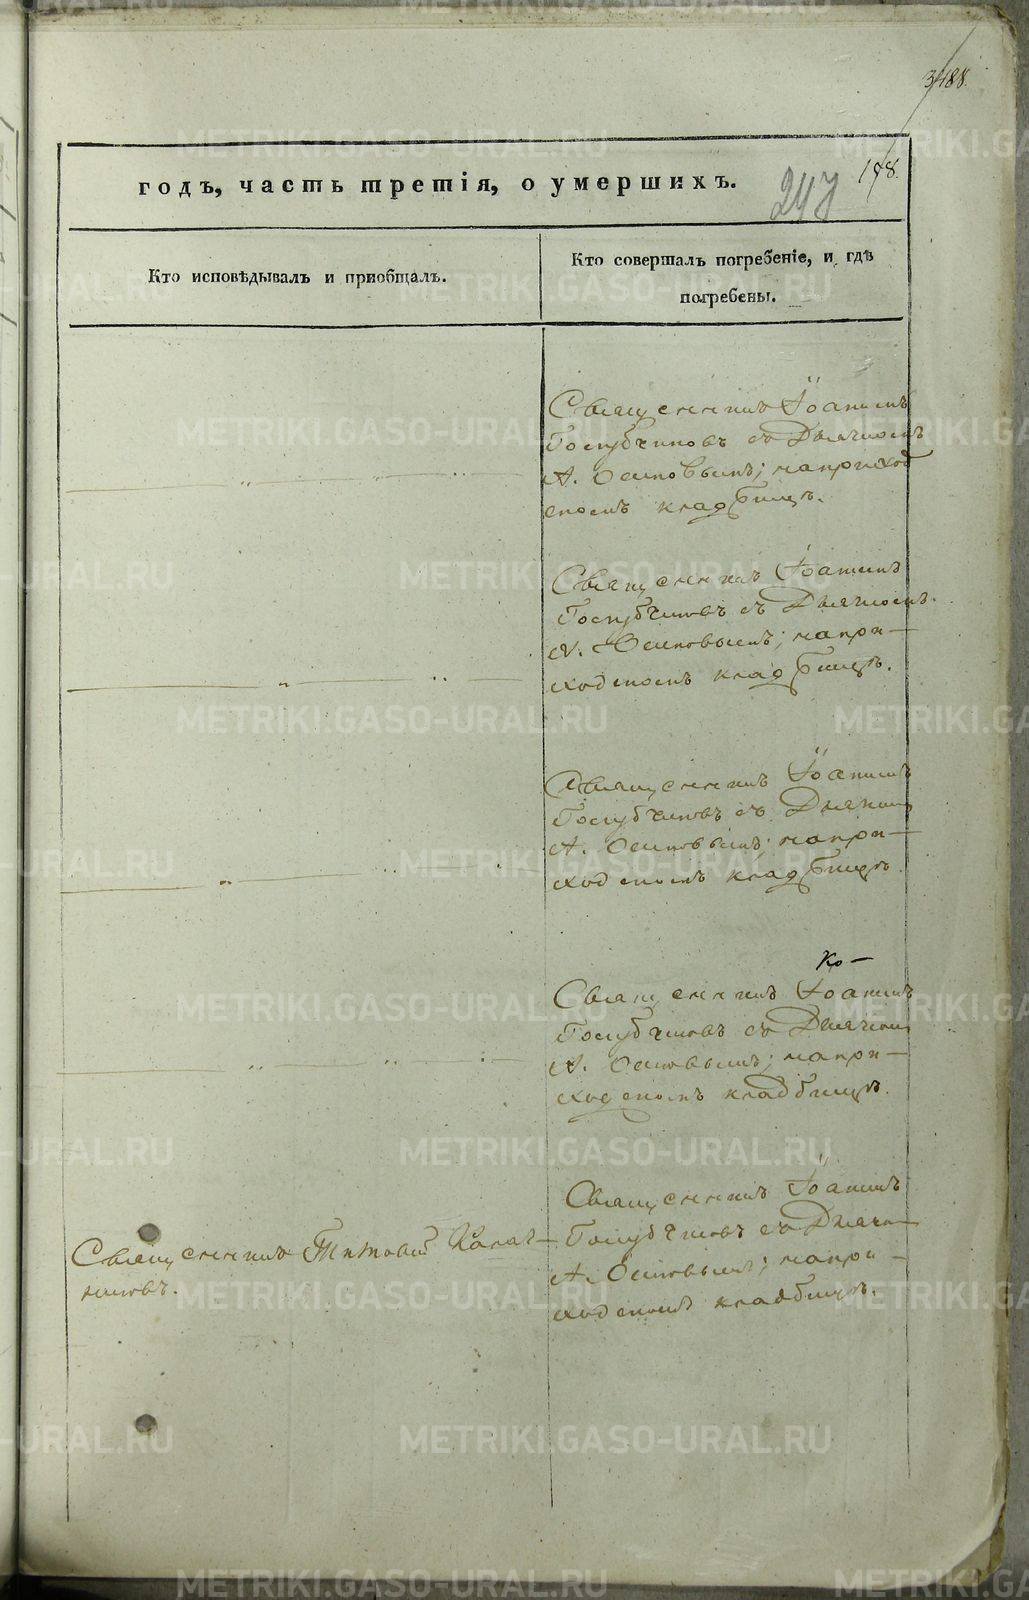 3488.
178.
247
годъ, часть третія, о умершихъ.
Кто исповѣдывалъ и пріобщалъ.
Кто совершалъ погребеніе, и гдѣ
погребены.
Священникъ Іоаннъ
Голубчиковъ съ Дьячкомъ
А. Осиповымъ; на приход
скомъ кладбищѣ.
Священникъ Іоаннъ
Голубчиковъ съ Дьячкомъ
А. Осиповымъ; на при-
ходскомъ кладбищѣ.
Священникъ Іоаннъ
Голубчиковъ съ Дьячкомъ
А. Осиповымъ; на при-
ходскомъ кладбищѣ.
Ко-
Священникъ Іоаннъ
Голубчиковъ съ Дьячком
А. Осиповымъ; на при-
ходскомъ кладбищѣ.
Священникъ Іоаннъ
Голубчиковъ съ Дьячко-
А. Осиповымъ; на при-
ходскомъ кладбищѣ.
Священникъ
новъ.
METRIKI.GASO-URAL.RU